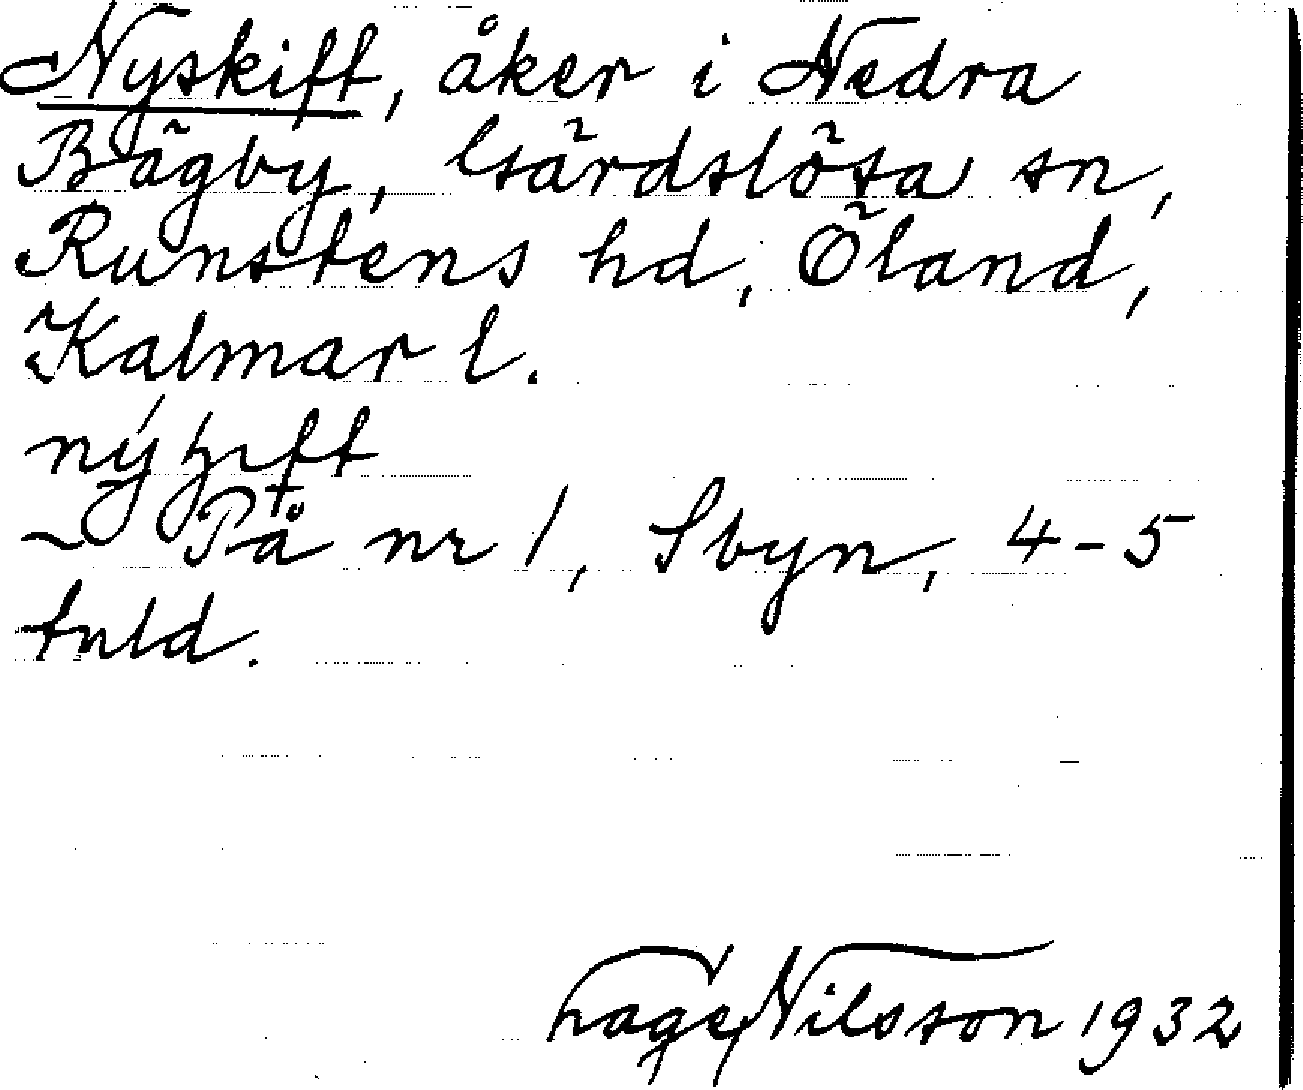 Nyskift, åker i Nedra
Bägby, Gärdslösa sn,
Runstens hd, Öland,
Kalmar l.
~ På nr 1, S byn, 4-5
tnld.
Tage Nilsson 1932